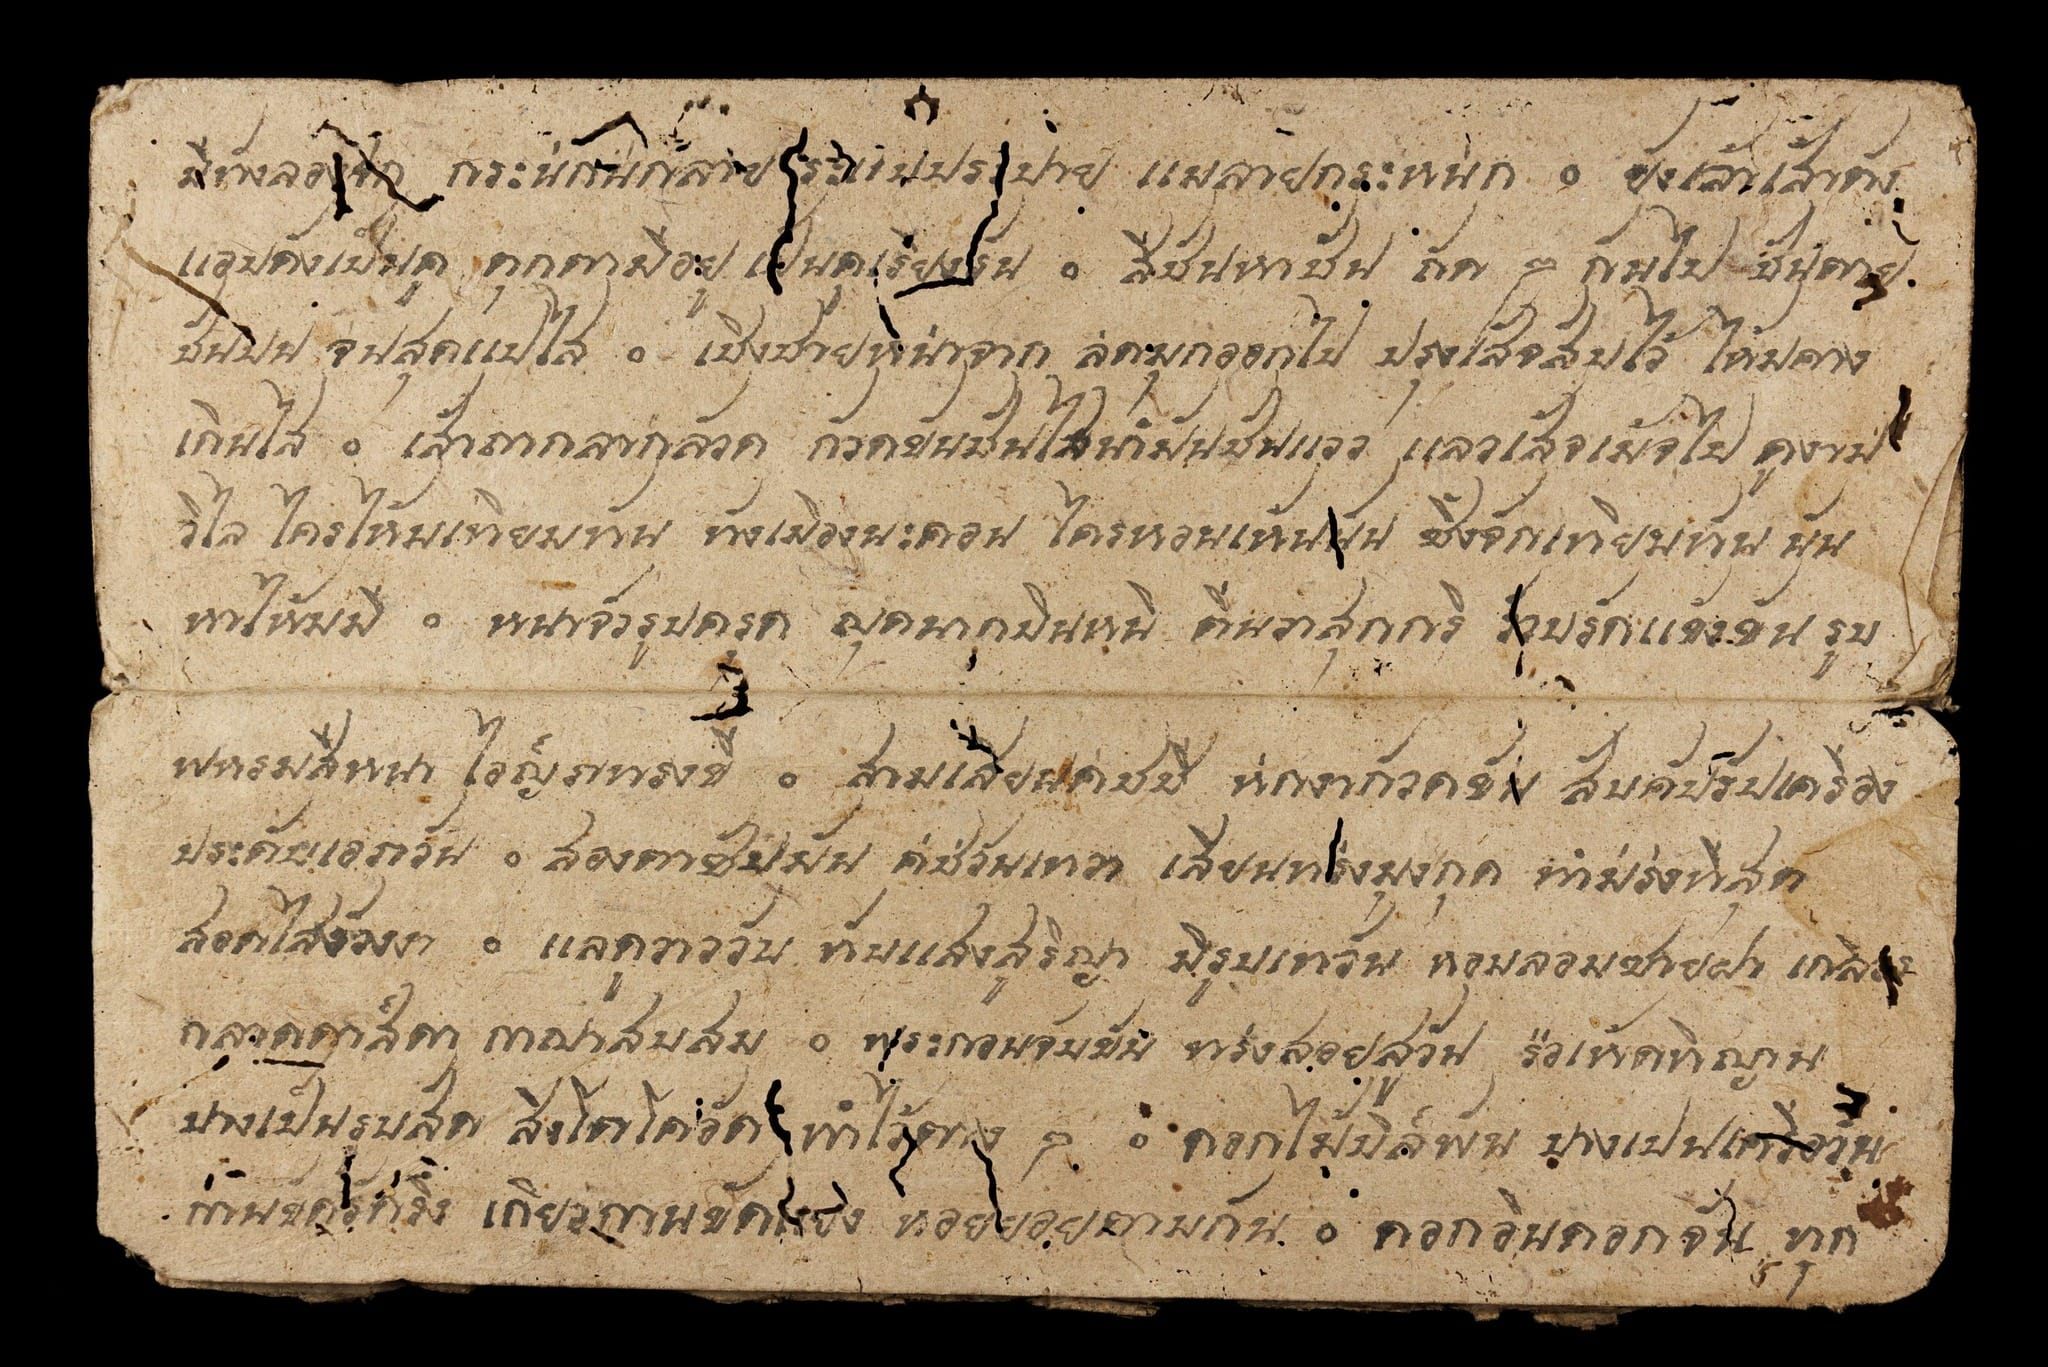 มีทังลองชัก กระนักนักลาย ประปราย แพลายกระหนก ๏ ยังเล้าเส้าตัง
แอบดังเปนคู ตุกตามีอยู เปนคูเรียงรัน ๏ สี่ชันหาชัน ถัด ๆ กันไป ชันตาย
ชันบน จนสุดแปไส ๏ เชิงชายหน้าจาก ลดมุกออกไป ปรุงเส้จสับไว้ ไห้มคาง
เกินไส ๏ เส้าถากลากลวด กวดขันชันไสนำมันชันแวว แลวเส้จเม้จไป ดูงาม
วิไล ไครไห้มเทียมทัน ทังเมืองนะคอน ไครหอนเห้นนัน ซึงจักเทียมทัน นัน
หาไห้มมี ๏ หนาจัวรูปครุด ญุดนาคบินหนี ตีนวาสุกกรี รวบรัดแข้งขัน รูบ
พหรมสีหนา ไอญ์ราทรงขี ๏ สามเสียนคชชี หักงากวดขัน สับคับรับเครือง
ประดับเอราวัน ๏ สองตาซับมัน คชวันเทวา เสียนทรงมุงกุด ทำมรงทีสุด
สอดไสงวงงา ๏ แลดูวาววับ ทับแสงสุริญา มีรูบเทวัน หอมลอมซายฝา เกลือง
กลาดดาส์ดา กาญาสมสม ๏ พระกอนจับขัน ทรงสอยสูวัน รัวเห้ดทิญาน
บางเป็นรูบสัด สิงโตโคอัด ทำไว้ตาง ๆ ๏ ดอกไม้บีส์พัน บางเปนเครือวัน
กานขดรักริง เกียวกานขัดหยิง หอยยอยตามกัน ๏ ดอกอินดอกจัน ทุก